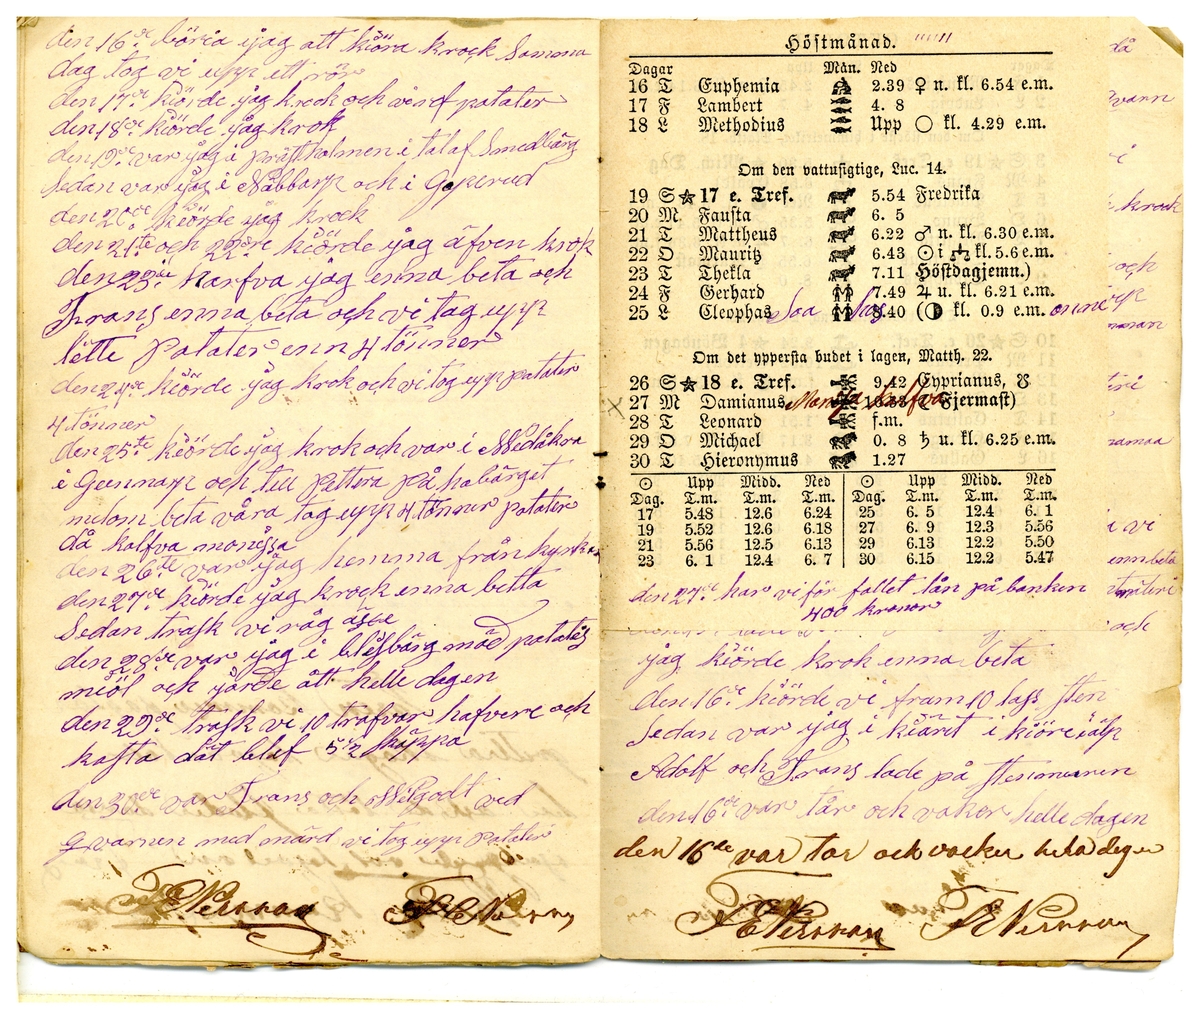 den 16de böria ijag att kiöra krock Samma
dag tog vi upp ett rör
den 17de kiörde ijag krock och vi ref potater
den 18de kiörde ijag krok
den 19de var ijag i prästholmen i tal af Smedbärg
Sedan var ijag i Nabbarp och i Gyperud
den 20de kiörde ijag krock
den 21ste och 22dre kiörde ijag äfven krok
den 23die harfva ijag enna beta och
Frans enna beta och vi tag upp
lette Potater enn 4 tönner
den 24de kiörde ijag krok och vi tog upp potater
4 tönner
den 25te kiörde ijag krok och var i Medåkra
i Gunnarp och till pettera på habärget
melom beta våra tag upp 4 tönner potater
då kalfva monissa
den 26te var ijag hemma från kyrkan
den 27de kiörde ijag krock enna betta
Sedan trask vi råg åsse
den 28de var ijag i blesbärg mäd potates
miöl och jorde ått helle dagen
den 29de trask vi 10 trafvar hafvere och
kasta dät blef 5½ skäppa
den 30de var Frans och Milgodt ved
qvarnen med märd vi tog upp Potater
F E Perrman F E Perrman
Höstmånad.
Dagar Mån. Ned
16 T Euphemia 2.39 ♀ n. kl. 6.54 e.m.
17 F Lambert 4. 8
18 L Methodius Upp ○ kl. 4.29 e.m.
Om den vattusigtige, Luc. 14.
19 S ★ 17 e. Tref. 5.54 Fredrika
20 M Fausta 6. 5
21 T Mattheus 6.22 ♂ n. kl. 6.30 e.m.
22 O Mauritz 6.43 ☉ i ♎ kl. 5.6 e.m.
23 T Thekla 7.11 Höstdagjemn.)
24 F Gerhard 7.49 ♃ u. kl. 6.21 e.m.
25 L Cleophas Saa Sas 8.40 (◑ kl. 0.9 e.m.
Om det yppersta budet i lagen, Matth. 22.
26 S ★ 18 e. Tref. 9.42 Cyprianus, ☋
27 M Damianus Monssa kalfva 10.53 (☾ Fjermast)
28 T Leonard f.m.
29 O Michael 0. 8 ♄ u. kl. 6.25 e.m.
30 T Hieronymus 1.27
☉ Upp Midd. Ned ☉ Upp Midd. Ned
Dag. T.m. T.m. T.m. Dag. T.m. T.m. T.m.
17 5.48 12.6 6.24 25 6. 5 12.4 6. 1
19 5.52 12.6 6.18 27 6. 9 12.3 5.56
21 5.56 12.5 6.13 29 6.13 12.2 5.50
23 6. 1 12.4 6. 7 30 6.15 12.2 5.47
den 27de har vi för fallet lån på banken
400 kronor
ijag kiörde krok enna beta
den 16de kiörde vi fram 10 lass sten
Sedan var ijag i kiärret i kiöre iälp
Adolf och Frans lade på stenmuren
den 16de var tår och vaker helle dagen
den 16de var tor och vacker hela dagen
F E Perrman F E Perrman